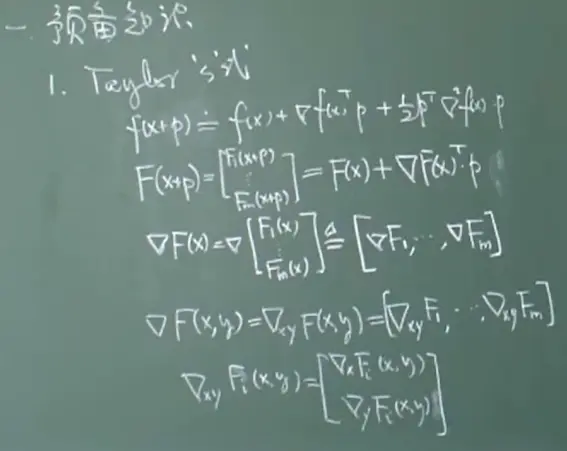 一 预备知识
1. Taylor 公式
f(x+p) ≐ f(x) + ∇f(x)ᵀp + ½pᵀ∇²f(x)·p
F(x+p) = [F₁(x+p) ⋮ Fₘ(x+p)] = F(x) + ∇F(x)ᵀ·p
∇F(x) = ∇[F₁(x) ⋮ Fₘ(x)] ≜ [∇F₁, ⋯, ∇Fₘ]
∇F(x,y) = ∇xy F(x,y) = [∇xy F₁, ⋯, ∇xy Fₘ]
∇xy Fᵢ(x,y) = [∇x Fᵢ(x,y) ∇y Fᵢ(x,y)]